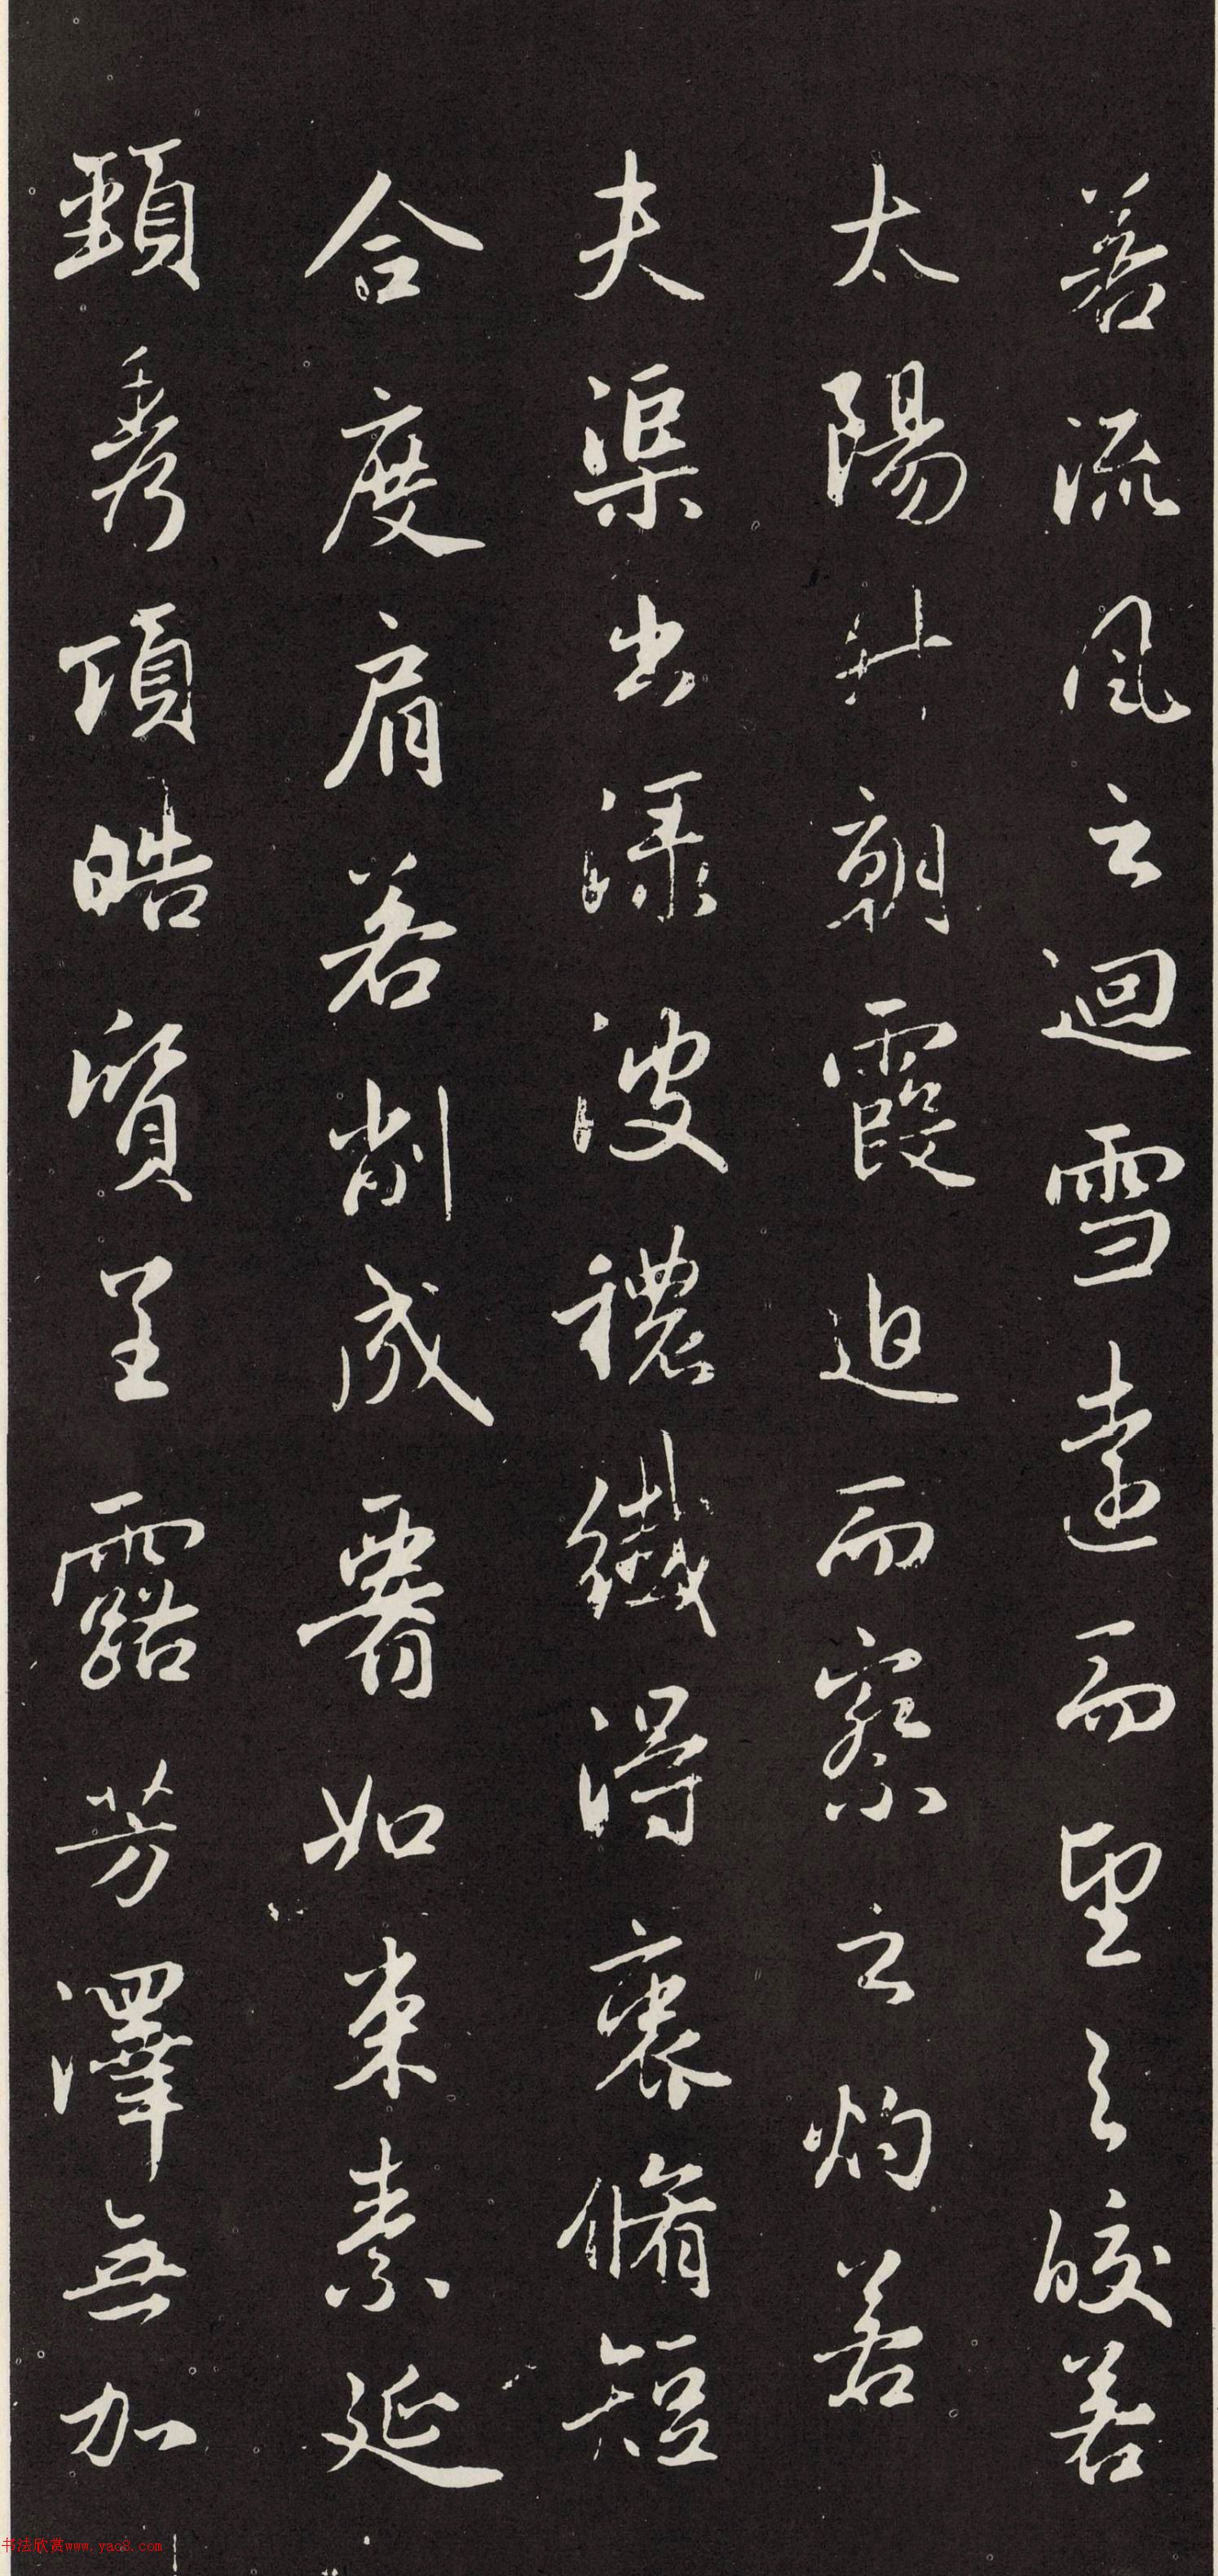 若流風之迴雪遠而望之皎若
太陽升朝霞迫而察之灼若
夫渠出渌波穠纖得衷脩短
合度肩若削成署如束素延
頸秀項皓質呈露芳澤無加
书法欣赏www.yac8.com